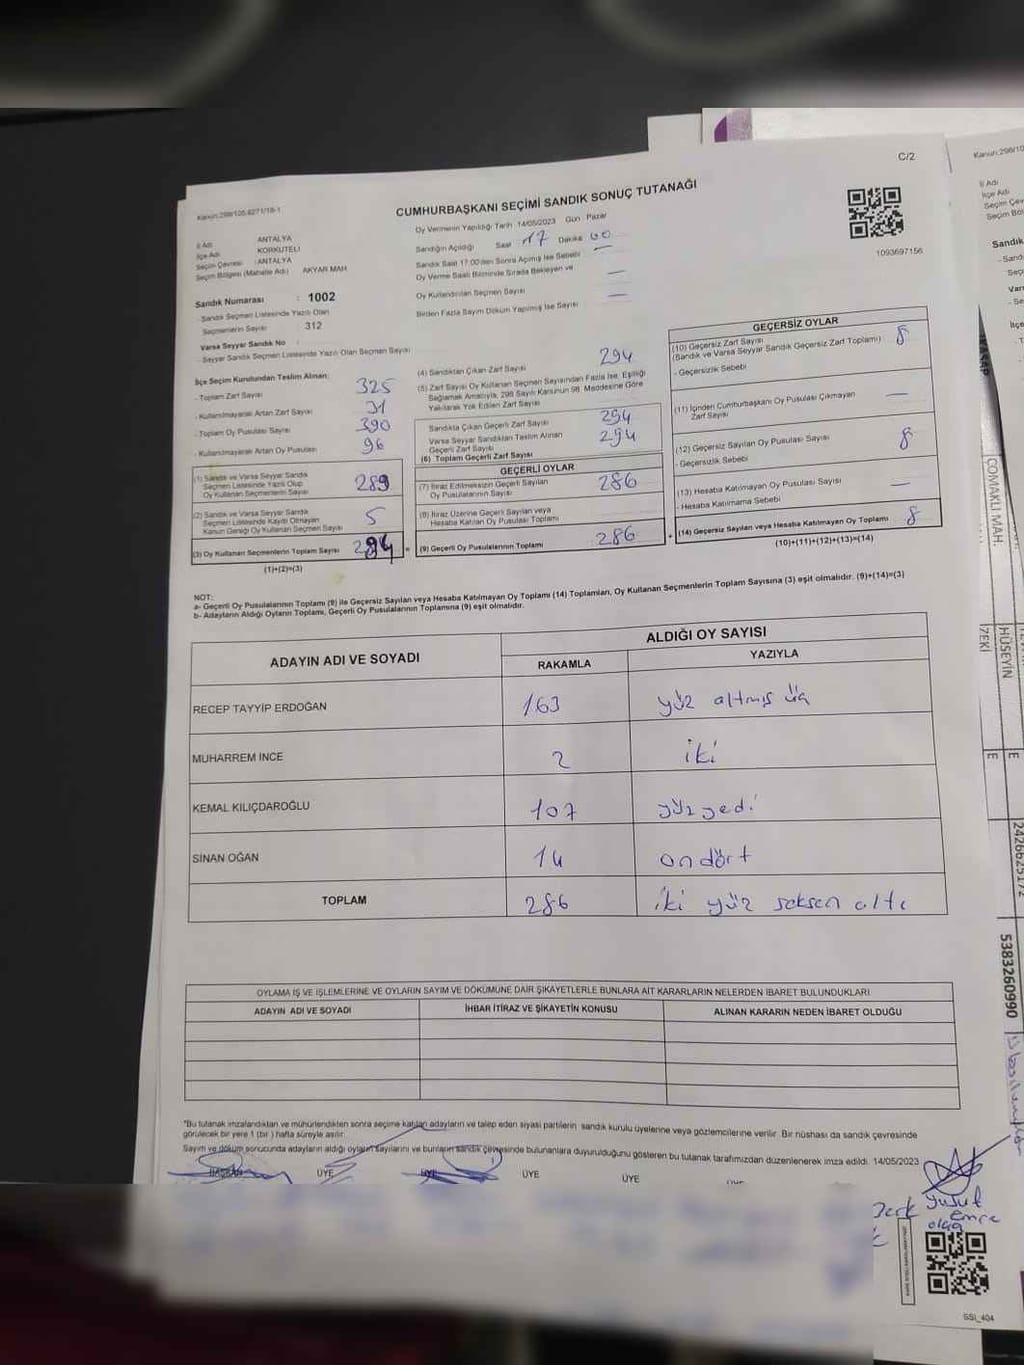 C/2
Kanun:298/105,6271/18-1
CUMHURBAŞKANI SEÇİMİ SANDIK SONUÇ TUTANAĞI
1093697156
İl Adı ANTALYA
İlçe Adı KORKUTELİ
Seçim Çevresi : ANTALYA
Seçim Bölgesi (Mahalle Adı) AKYAR MAH
Sandık Numarası : 1002
Sandık Seçmen Listesinde Yazılı Olan
Seçmenlerin Sayısı 312
Varsa Seyyar Sandık No :
- Seyyar Sandık Seçmen Listesinde Yazılı Olan Seçmen Sayısı
Oy Vermenin Yapıldığı Tarih 14/05/2023 Gün Pazar
Sandığın Açıldığı Saat 17 Dakika 00
Sandık Saat 17:00'den Sonra Açılmış İse Sebebi —
Oy Verme Saati Bitiminde Sırada Bekleyen ve
Oy Kullandırılan Seçmen Sayısı —
Birden Fazla Sayım Döküm Yapılmış İse Sayısı —
İlçe Seçim Kurulundan Teslim Alınan;
- Toplam Zarf Sayısı 325
- Kullanılmayarak Artan Zarf Sayısı 31
- Toplam Oy Pusulası Sayısı 390
- Kullanılmayarak Artan Oy Pusulası 96
(1) Sandık ve Varsa Seyyar Sandık
Seçmen Listesinde Yazılı Olup
Oy Kullanan Seçmenlerin Sayısı 289
(2) Sandık ve Varsa Seyyar Sandık
Seçmen Listesinde Kaydı Olmayan
Kanun Gereği Oy Kullanan Seçmen Sayısı 5
(3) Oy Kullanan Seçmenlerin Toplam Sayısı 294 =
(1)+(2)=(3)
(4) Sandıktan Çıkan Zarf Sayısı 294
(5) Zarf Sayısı Oy Kullanan Seçmen Sayısından Fazla İse, Eşitliği
Sağlamak Amacıyla, 298 Sayılı Kanunun 98. Maddesine Göre
Yakılarak Yok Edilen Zarf Sayısı
Sandıkta Çıkan Geçerli Zarf Sayısı 294
Varsa Seyyar Sandıktan Teslim Alınan
Geçerli Zarf Sayısı 294
(6) Toplam Geçerli Zarf Sayısı
GEÇERLİ OYLAR
(7) İtiraz Edilmeksizin Geçerli Sayılan
Oy Pusulalarının Sayısı 286
(8) İtiraz Üzerine Geçerli Sayılan veya
Hesaba Katılan Oy Pusulası Toplamı
(9) Geçerli Oy Pusulalarının Toplamı 286 +
GEÇERSİZ OYLAR
(10) Geçersiz Zarf Sayısı
(Sandık ve Varsa Seyyar Sandık Geçersiz Zarf Toplamı) 8
- Geçersizlik Sebebi
(11) İçinden Cumhurbaşkanı Oy Pusulası Çıkmayan
Zarf Sayısı —
(12) Geçersiz Sayılan Oy Pusulası Sayısı 8
- Geçersizlik Sebebi
(13) Hesaba Katılmayan Oy Pusulası Sayısı —
- Hesaba Katılmama Sebebi
(14) Geçersiz Sayılan veya Hesaba Katılmayan Oy Toplamı 8
(10)+(11)+(12)+(13)=(14)
NOT:
a- Geçerli Oy Pusulalarının Toplamı (9) ile Geçersiz Sayılan veya Hesaba Katılmayan Oy Toplamı (14) Toplamları, Oy Kullanan Seçmenlerin Toplam Sayısına (3) eşit olmalıdır. (9)+(14)=(3)
b- Adayların Aldığı Oyların Toplamı, Geçerli Oy Pusulalarının Toplamına (9) eşit olmalıdır.
ADAYIN ADI VE SOYADI
ALDIĞI OY SAYISI
RAKAMLA YAZIYLA
RECEP TAYYİP ERDOĞAN 163 yüz altmış üç
MUHARREM İNCE 2 iki
KEMAL KILIÇDAROĞLU 107 yüz yedi
SİNAN OĞAN 14 on dört
TOPLAM 286 iki yüz seksen altı
OYLAMA İŞ VE İŞLEMLERİNE VE OYLARIN SAYIM VE DÖKÜMÜNE DAİR ŞİKAYETLERLE BUNLARA AİT KARARLARIN NELERDEN İBARET BULUNDUKLARI
ADAYIN ADI VE SOYADI İHBAR İTİRAZ VE ŞİKAYETİN KONUSU ALINAN KARARIN NEDEN İBARET OLDUĞU
*Bu tutanak imzalandıktan ve mühürlendikten sonra seçime katılan adayların ve talep eden siyasi partilerin sandık kurulu üyelerine veya gözlemcilerine verilir. Bir nüshası da sandık çevresinde
görülecek bir yere 1 (bir) hafta süreyle asılır.
Sayım ve döküm sonucunda adayların aldığı oyların sayılarını ve bunların sandık çevresinde bulunanlara duyurulduğunu gösteren bu tutanak tarafımızdan düzenlenerek imza edildi. 14/05/2023
BAŞKAN ÜYE ÜYE ÜYE ÜYE
Yusuf
Emre
SSI_404
Kanun:298/10
İl Adı
İlçe Adı
Seçim Çev
Seçim Böl
Sandık
ÇOMAKLI MAH.
HÜSEYİN
ZEKİ
E
E
2426625172
5383260990